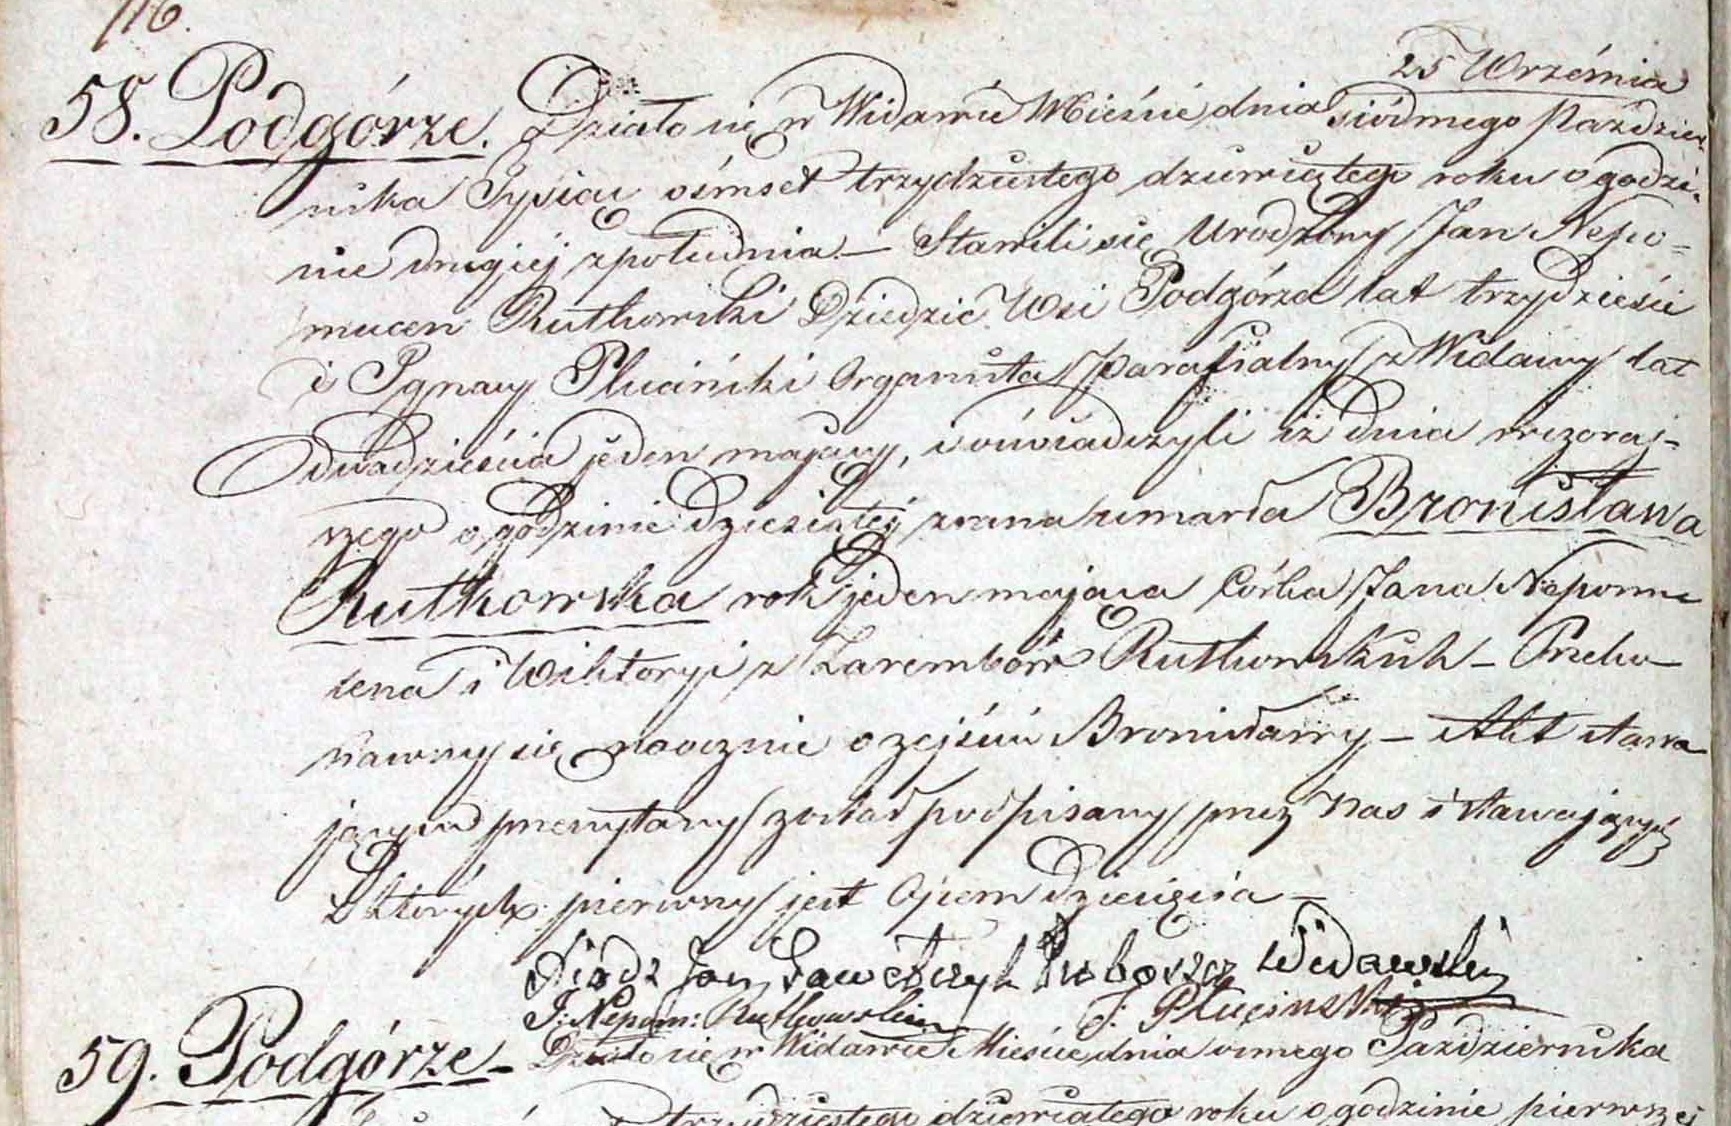 116.
58. Podgórze. Działo się w Widawie Mieście dnia 25 Września siódmego Paździer-
nika Tysiąc ośmset trzydziestego dziewiątego roku o godzi-
nie drugiej z południa – Stawili się Urodzony Jan Nepo=
mucen Rutkowski Dziedzic Wsi Podgórza lat trzydzieści
i Ignacy Pluciński Organista Parafialny z Widawy lat
dwadzieścia jeden mający, i oświadczyli iż dnia wczoraj-
szego o godzinie dziesiątej zrana umarła Bronisława
Rutkowska rok jeden mająca Córka Jana Nepomu
cena i Wiktoryi z Zarembów Rutkowskich – Przeko-
nawszy się naocznie o zejściu Bronisławy – Akt stawa
jącym przeczytany został podpisany przez Nas i stawających
z których pierwszy jest Ojcem dziecięcia –
Xiądz Jan Ławetczyk Proboszcz Widawski
J: Nepom: Rutkowski J. Pluciński
59. Podgórze – Działo się w Widawie Mieście dnia ósmego Października
trzydziestego dziewiątego roku o godzinie pierwszej